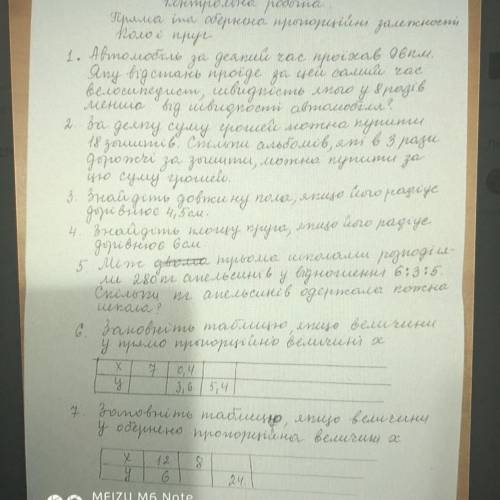 Контрольна робота.
Пряма та обернена пропорційні залежності
Коло і круг
1. Автомобіль за деякий час проїхав 96км.
Яку відстань проїде за цей самий час
велосипедист, швидкість якого у 8 разів
менша від швидкості автомобіля?
2. За деяку суму грошей можна купити
18 зошитів. Скільки альбомів, які в 3 рази
дорожчі за зошити, можна купити за
цю суму грошей.
3. Знайдіть довжину кола, якщо його радіус
дорівнює 4,5см.
4. Знайдіть площу круга, якщо його радіус
дорівнює 6см
5 Між трьома школами розподіл-
ли 280кг апельсинів у відношенні 6:3:5.
Скільки кг апельсинів одержала кожна
школа?
6. Заповніть таблицю, якщо величини
у прямо пропорційно величині х
х 7 0,4
у 3,6 5,4
7. Заповніть таблицю, якщо величину
у обернено пропорційна величині х
х 12 8
у 6 24
MEIZU M6 Note